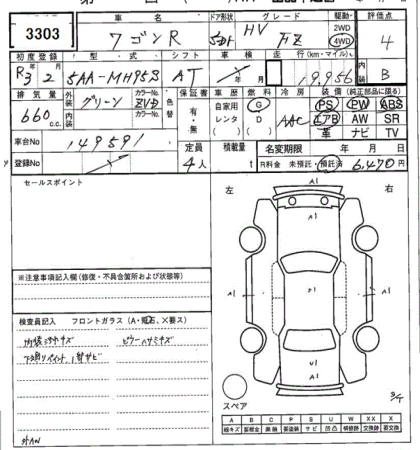 3303
車名 ドア形状 グレード 駆動 評価点
ワゴンR 5D HV FZ 2WD 4WD 4
初度登録 型・式 シフト 車検 走行(km・マイル) 内装
R3 2 5AA-MH95S AT 19,956 B
排気量 外装 カラーNo. 色替 保証書 車歴 燃料 冷房 装備(純正部品に限る)
660 c.c. グリーン ZVD 有・無 自家用 レンタ G D AAC PS PW ABS
内装 カラーNo. エアB AW SR
革 ナビ TV
車台No 149591 定員 積載量 名変期限 年 月 日
登録No 4人 t R料金 未預託・預託済 6,470円
セールスポイント
左 右
A1
A1 A1
A1
U1
A1
※注意事項記入欄(修復・不具合箇所および状態等)
検査員記入 フロントガラス(A・飛石、X要ス)
内装ヨゴレキズ ピラーハサミキズ
下廻りペイント、1部サビ
スペア
A B C P S U W X XX
線キズ 要補修 腐蝕 要塗装 サビ 凹凸 補修跡 要交換 交換済